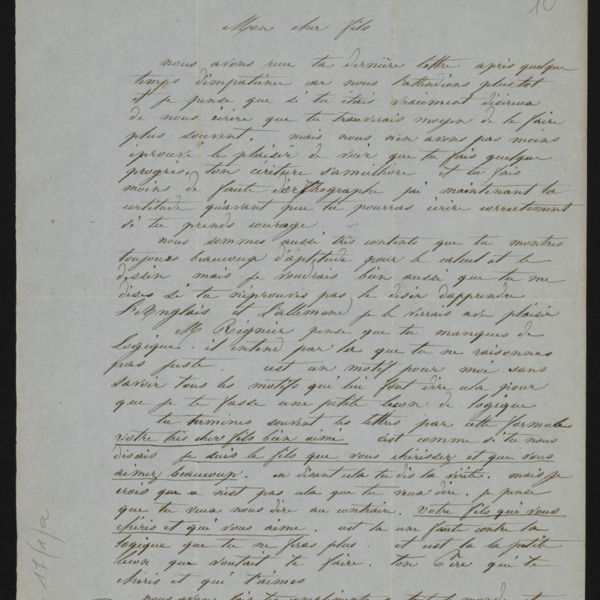 10
Mon cher fils
nous avons reue ta dernière lettre après quelque
temps d'impatience car nous l'attendions plus tot
et je pense que si tu étais vraiment désireux
de nous écrire que tu trouverais moyen de le faire
plus souvent. mais nous n'en avons pas moins
éprouvé le plaisir de voir que tu fais quelque
progres, ton écriture s'améliore et tu fais
moins de faute d'orthographe j'ai maintenant la
certitude qu'avant peu tu pourras écrire correctement
si tu prends courage
nous sommes aussi très contents que tu montres
toujours beaucoup d'aptitude pour le calcul et le
dessin mais je voudrais bien aussi que tu me
dises si tu n'éprouves pas le désir d'apprendre
l'Anglais et l'allemand je le verrais avec plaisir
Mr Régnier pense que tu manques de
logique. il entend par la que tu ne raisonnes
pas juste. c'est un motif pour moi sans
savoir tous les motifs qui lui font dire cela pour
que je te fasse une petite lecon de logique
tu termines souvent tes lettres par cette formule
votre très chers fils bien aimé c'est comme si tu nous
disais je suis le fils que vous chérissez et que vous
aimez beaucoup. en disant cela tu dis la vérité. mais je
crois que ce n'est pas cela que tu veux dire. je pense
que tu veux nous dire au contraire. votre fils qui vous
chéris et qui vous aime. c'est la une faute contre la
logique que tu ne feras plus. et c'est la la petite
lecon que voulait te faire. ton Père qui te
chéris et qui t'aimes
17/1/a